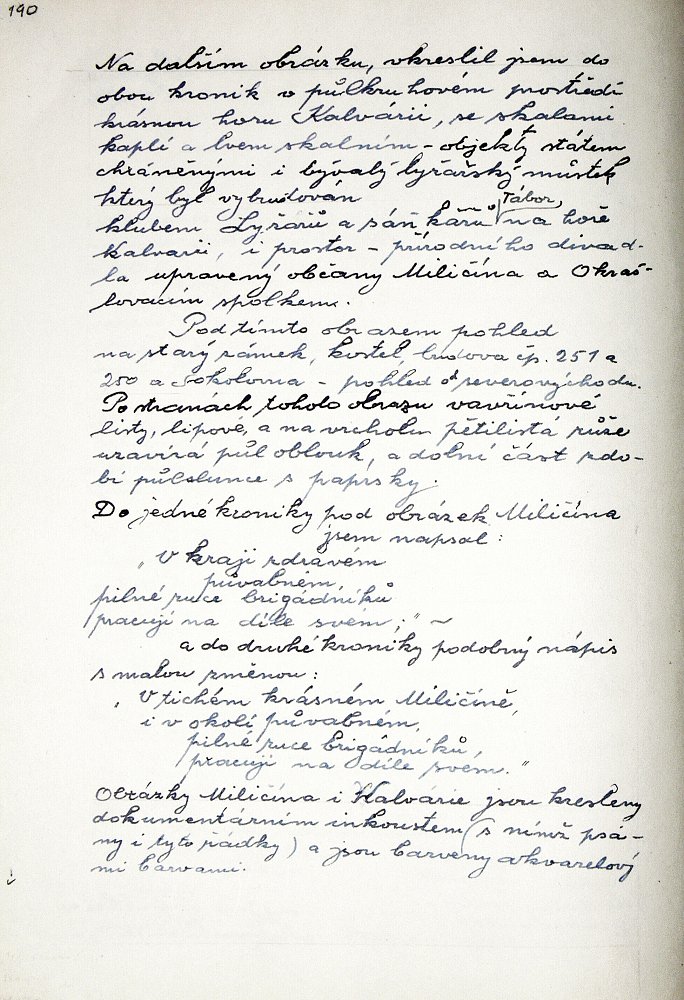 190
Na dalším obrázku, vkreslil jsem do
obou kronik v půlkruhovém prostředí
krásnou horu Kalvárii, se skalami
kaplí a lvem skalním - objekty státem
chráněnými i bývalý lyžařský můstek
který byl vybudován
klubem Lyžařů a sáňkařů Tábor, na hoře
Kalvarii, i prostor - přírodního divad-
la upravený občany Miličína a Okraš-
lovacím spolkem.
Pod tímto obrazem pohled
na starý zámek, kostel, budova čp. 251 a
250 a Sokolovna - pohled od severovýchodu.
Po stranách tohoto obrazu vavřínové
listy, lipové, a na vrcholu pětilistá růže
uzavírá půl oblouk, a dolní část zdo-
bí půlslunce s paprsky.
Do jedné kroniky pod obrázek Miličína
jsem napsal:
„V kraji zdravém
půvabném,
pilné ruce brigádníků
pracují na díle svém;" ~
a do druhé kroniky podobný nápis
s malou změnou:
„V tichém krásném Miličíně,
i v okolí půvabném,
pilné ruce brigádníků,
pracují na díle svém."
Obrázky Miličína i Kalvárie jsou kresleny
dokumentárním inkoustem (s nímž psá-
ny i tyto řádky) a jsou barveny akvarelový
mi barvami.